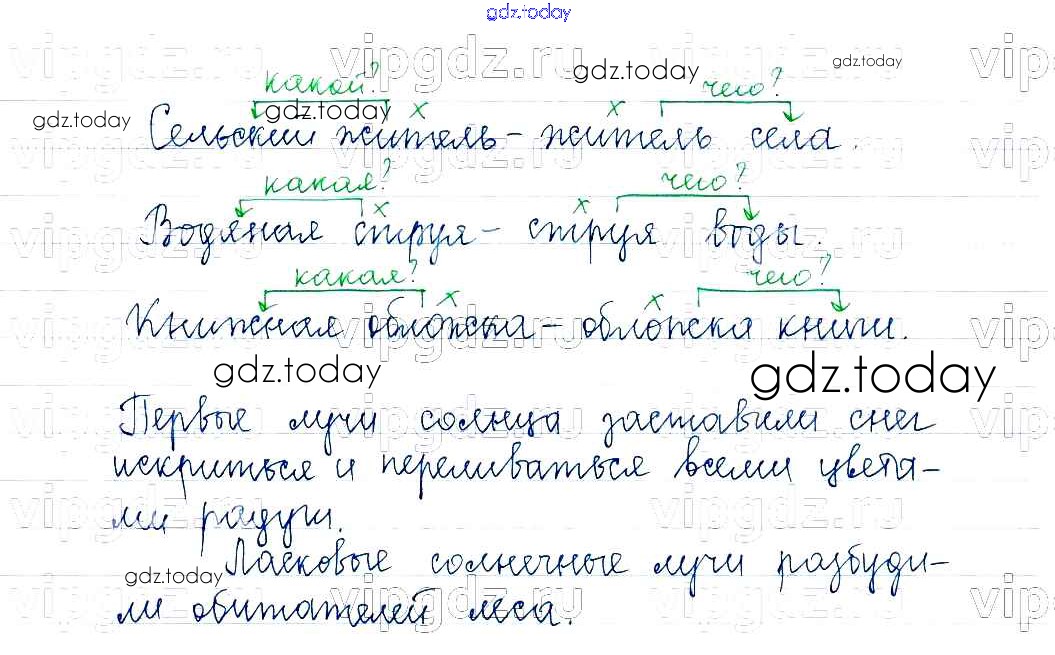 gdz.today
vipgdz.ru vipgdz.ru vip
какой? gdz.today чего? gdz.today
gdz.today gdz.today
Сельский житель – житель села.
какая? чего?
Водяная струя – струя воды.
какая? чего?
Книжная обложка – обложка книги.
gdz.today gdz.today
Первые лучи солнца заставили снег
искриться и переливаться всеми цвета-
ми радуги.
Ласковые солнечные лучи разбуди-
gdz.today
ли обитателей леса.